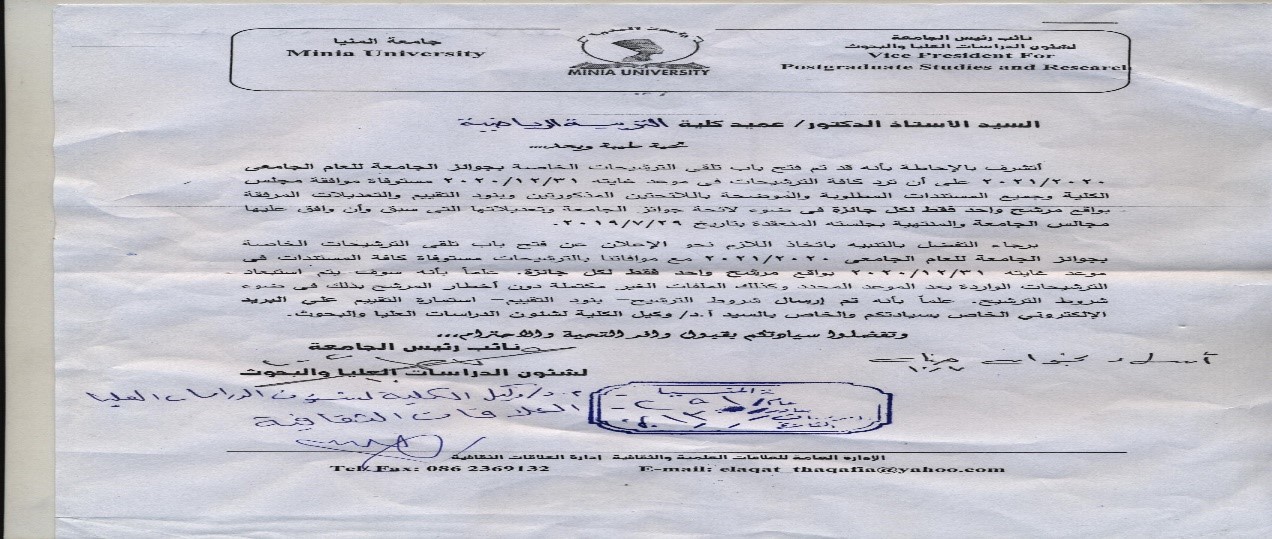 جامعة المنيا
Minia University
MINIA UNIVERSITY
نائب رئيس الجامعة
لشئون الدراسات العليا والبحوث
Vice President For
Postgraduate Studies and Research
السيد الأستاذ الدكتور/ عميد كلية التربية الرياضية
تحية طيبة وبعد،،،،
أتشرف بالإحاطة بأنه قد تم فتح باب تلقى الترشيحات الخاصة بجوائز الجامعة للعام الجامعى
٢٠٢١/٢٠٢٠ على أن ترد كافة الترشيحات فى موعد غايته ٢٠٢٠/١٢/٣١ مستوفاة موافقة مجلس
الكلية وجميع المستندات المطلوبة والموضحة باللائحتين المذكورتين وبنود التقييم والتعديلات المرفقة
بواقع مرشح واحد فقط لكل جائزة فى ضوء لائحة جوائز الجامعة وتعديلاتها التى سبق وأن وافق عليها
مجالس الجامعة والمنتهية بجلسته المنعقدة بتاريخ ٢٠١٩/٧/٢٩.
برجاء التفضل بالتنبيه باتخاذ اللازم نحو الإعلان عن فتح باب تلقى الترشيحات الخاصة
بجوائز الجامعة للعام الجامعى ٢٠٢١/٢٠٢٠ مع موافاتنا بالترشيحات مستوفاة كافة المستندات فى
موعد غايته ٢٠٢٠/١٢/٣١ بواقع مرشح واحد فقط لكل جائزة. علماً بأنه سوف يتم استبعاد
الترشيحات الواردة بعد الموعد المحدد وكذلك الملفات الغير مكتملة دون أخطار المرشح بذلك فى ضوء
شروط الترشيح. علماً بأنه تم إرسال شروط الترشيح- بنود التقييم- استمارة التقييم على البريد
الإلكتروني الخاص بسيادتكم والخاص بالسيد أ.د/ وكيل الكلية لشئون الدراسات العليا والبحوث.
وتفضلوا سيادتكم بقبول وافر التحية والاحترام،،،
نائب رئيس الجامعة
لشئون الدراسات العليا والبحوث
د/ وكيل الكلية لشئون الدراسات العليا
العلاقات الثقافية
الإدارة العامة للعلاقات العلمية والثقافية إدارة العلاقات الثقافية
Tel. Fax: 086 2369132 E-mail: elaqat_thaqafia@yahoo.com